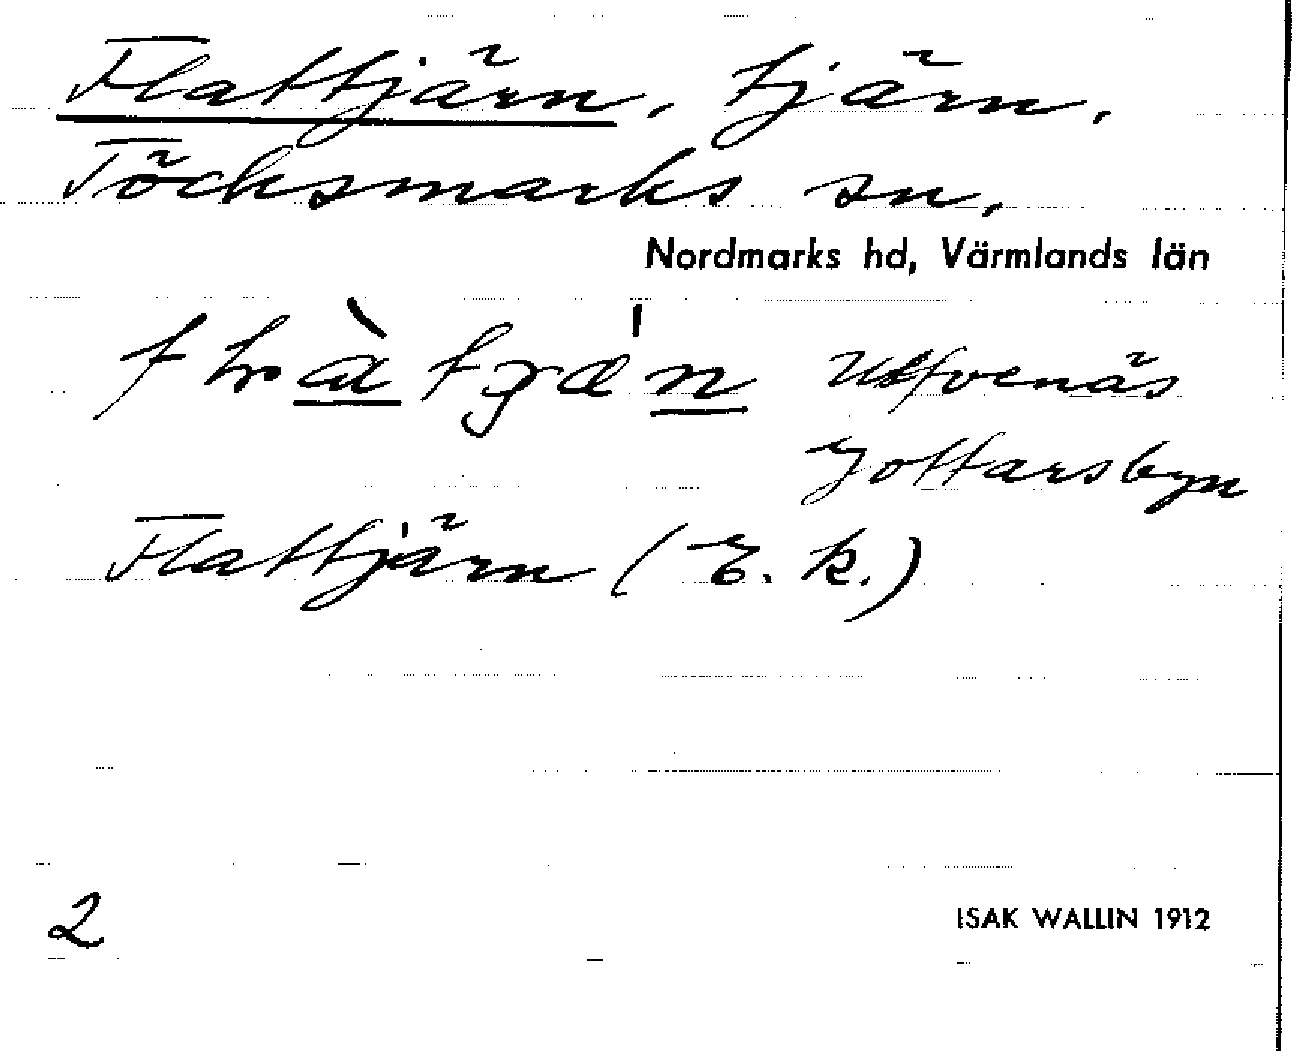 Flattjärn, tjärn,
Töcksmarks sn,
Nordmarks hd, Värmlands län
Utvenäs
Gottarsbyn
Flattjärn (E. k.)
2
ISAK WALLIN 1912